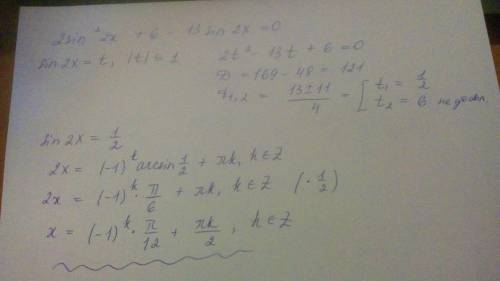 2sin²2x + 6 - 13 sin 2x = 0
sin 2x = t, |t| = 1 2t² - 13t + 6 = 0
D = 169 - 48 = 121
t₁,₂ = (13 ± 11)/4 = [ t₁ = 1/2
t₂ = 6 не довл.
sin 2x = 1/2
2x = (-1)ᵏ arcsin 1/2 + πk, k ∈ Z
2x = (-1)ᵏ · π/6 + πk, k ∈ Z (· 1/2)
x = (-1)ᵏ · π/12 + πk/2, k ∈ Z